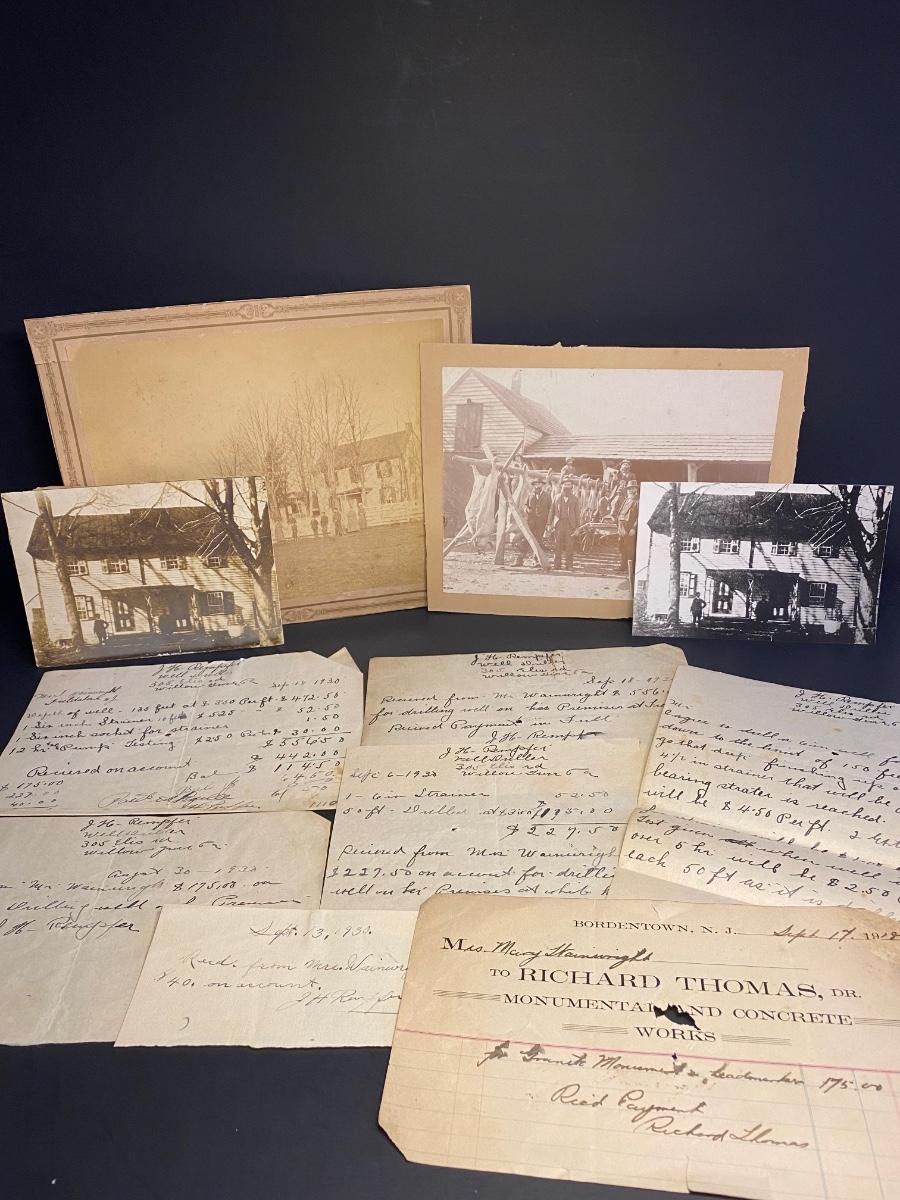 J. H. Rempfer
Well Driller
305 Elis rd
Willow Grove Pa
Sep 18 1930
Depth of well - 135 feet at $3.50 Per ft $472.50
1 Six inch Strainer 10 ft $525 - $ 52.50
1 Six inch socket for strain 1.50
12 hrs Pump Testing $2.50 Per hr 30.00
$556.50
Recieved on account $ 442.00
Bal $ 114.50
$175.00
227.00
40.00
J. H. Rempfer
Well Driller
305 Elis rd
Willow Grove Pa
Sep 18 19
Recieved from Mr Wainwright $556.
for drilling well on her Premises at
Recieved Payment in Full
J. H. Rempf
J. H. Rempfer
Well Driller
305 Elis rd
Willow
Mr
agree to drill a 6 in well
down to the limit of 150 feet
go that deep furnishing
4 1/2 in strainer that will be
bearing strater is reached.
will be $4.50 Per ft.
Test given
over 5 hr will be $2.50
each 50 ft as it is
J. H. Rempfer
Well Driller
305 Elis rd
Willow Grove Pa
Sept 6 - 1930
1 - 6 in Strainer 52.50
50 ft - Drilled at $3.50 ft 175.00
$227.50
Recieved from Mrs Wainwright
$227.50 on account for drilling
well on her Premises at
J. H. Rempfer
Well Driller
305 Elis rd
Willow Grove Pa
August 30 - 1930
Mr Wainwright $175.00 on
Drilling well Premises
J. H. Rempfer
Sept. 13, 1930.
Recd. from Mrs. Wainwri
$40. on account.
J H Rempfer
BORDENTOWN, N. J. Sept 17 191
Mrs. Mary Wainwright
TO RICHARD THOMAS, DR.
MONUMENTAL AND CONCRETE
WORKS
for Granite Monument & headmarker 175.00
Rec'd Payment
Richard Thomas